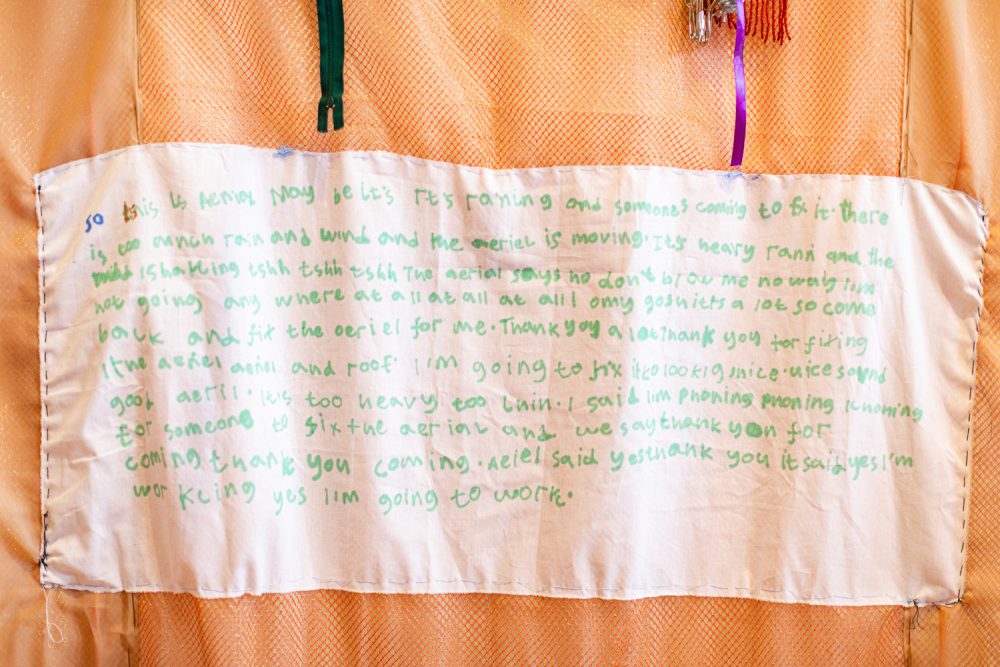 so this is Aeriol May be it's It's raining and someones coming to fix it. there
is too much rain and wind and the aeriel is moving. It's heavy rann and the
is harking tshh tshh tshh The aerial says no don't blow me no way I,m
not going any where at all at all at all l omy goshits a lot so come
back and fix the aeriel for me. Thank you a lot Thank you for fixing
the aeriel aeriel and roof. I'm going to fix it to looking nice. nice sound
good aeril. It's too heavy too thin. I said I,m phoning phoning
for someone to fix the aerial and we say thank you for
coming thank you coming. Aeiel said yes thank you it said yes I'm
workcing yes I,m going to work.